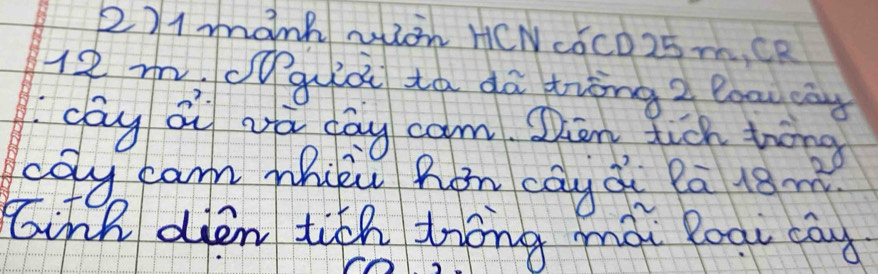 2) 1 mảnh vườn HCN có CD 25 m, CR
12 m. Người ta đã trồng 2 loại cây
: cây ổi và cây cam. Diện tích trồng
cây cam nhiều hơn cây ổi là 18 m².
Tính diện tích trồng mỗi loại cây.